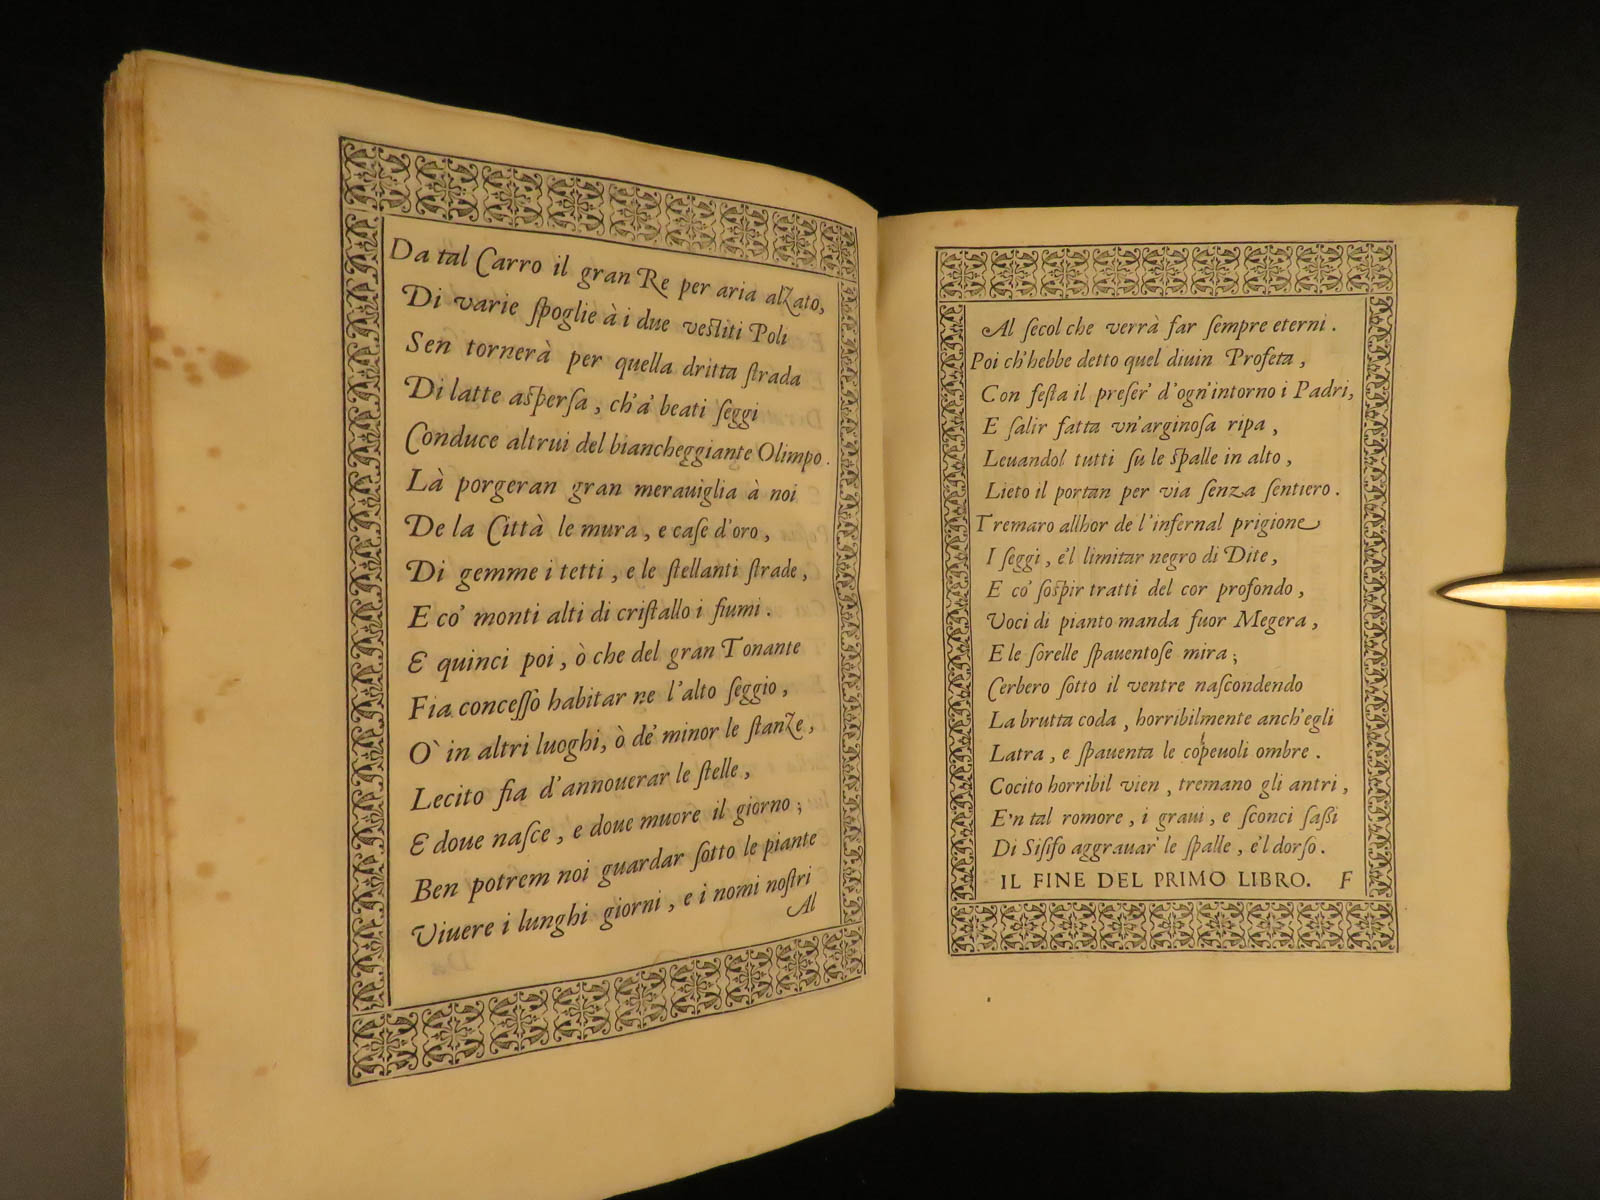 Da tal Carro il gran Re per aria alzato,
Di varie ſpoglie à i due veſtiti Poli
Sen tornerà per quella dritta ſtrada
Di latte aſperſa, ch'a' beati ſeggi
Conduce altrui del biancheggiante Olimpo.
Là porgeran gran merauiglia à noi
De la Città le mura, e caſe d'oro,
Di gemme i tetti, e le ſtellanti ſtrade,
E co' monti alti di criſtallo i fiumi.
E quinci poi, ò che del gran Tonante
Fia conceſſo habitar ne l'alto ſeggio,
O' in altri luoghi, ò de' minor le ſtanze,
Lecito fia d'annouerar le ſtelle,
E doue naſce, e doue muore il giorno;
Ben potrem noi guardar ſotto le piante
Viuere i lunghi giorni, e i nomi noſtri
Al
Al ſecol che verrà far ſempre eterni.
Poi ch'hebbe detto quel diuin Profeta,
Con feſta il preſer' d'ogn'intorno i Padri,
E ſalir fatta vn'arginoſa ripa,
Leuandol tutti ſu le ſpalle in alto,
Lieto il portan per via ſenza ſentiero.
Tremaro allhor de l'infernal prigione
I ſeggi, e'l limitar negro di Dite,
E co' ſoſpir tratti del cor profondo,
Voci di pianto manda fuor Megera,
E le ſorelle ſpauentoſe mira;
Cerbero ſotto il ventre naſcondendo
La brutta coda, horribilmente anch'egli
Latra, e ſpauenta le copeuoli ombre.
Cocito horribil vien, tremano gli antri,
E'n tal romore, i graui, e ſconci ſaſſi
Di Siſifo aggrauar' le ſpalle, e'l dorſo.
IL FINE DEL PRIMO LIBRO. F